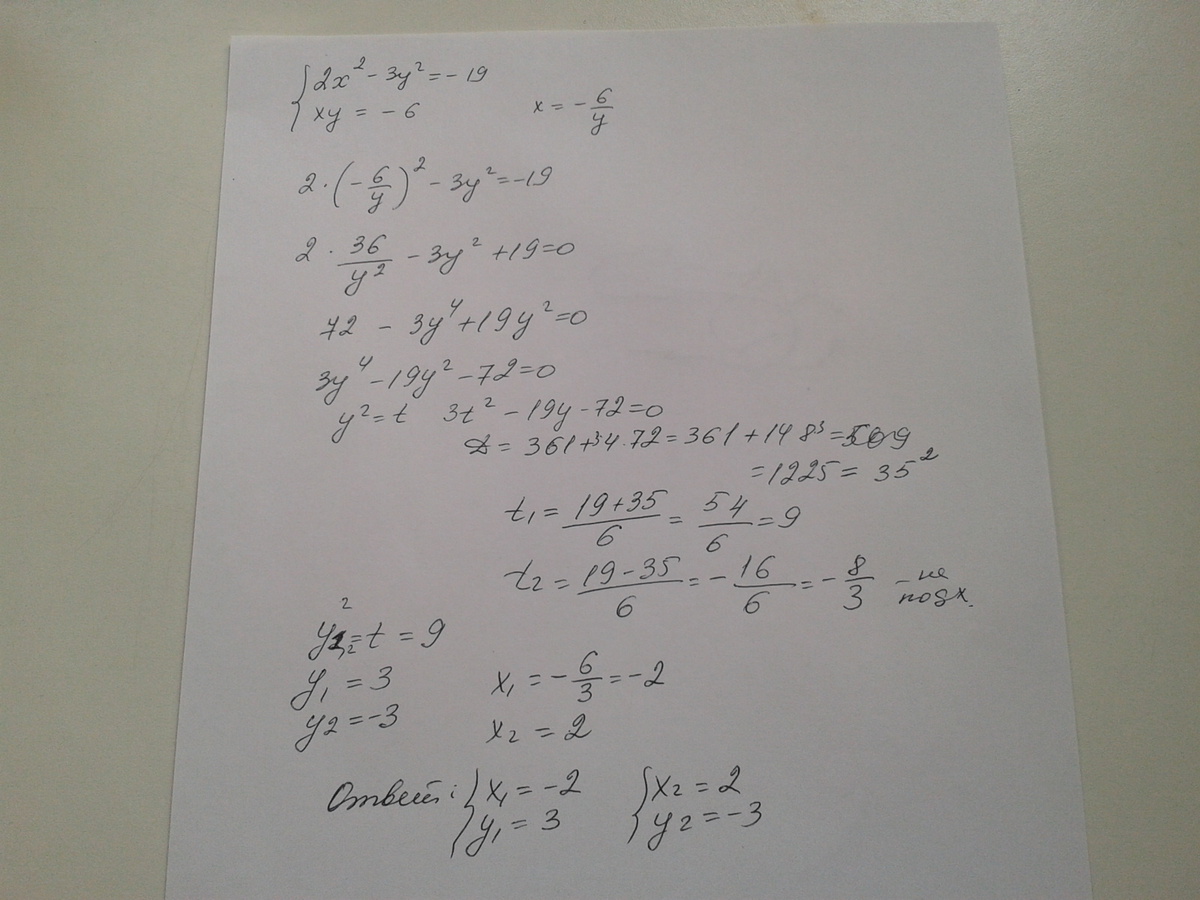 { 2x² - 3y² = -19
xy = -6 x = -6/y
2·(-6/y)² - 3y² = -19
2·36/y² - 3y² + 19 = 0
72 - 3y⁴ + 19y² = 0
3y⁴ - 19y² - 72 = 0
y² = t 3t² - 19y - 72 = 0
D = 361 + 3·4·72 = 361 + 148 =
= 1225 = 35²
t₁ = (19+35)/6 = 54/6 = 9
t₂ = (19-35)/6 = -16/6 = -8/3 - не подх.
y²₁,₂ = t = 9
y₁ = 3 x₁ = -6/3 = -2
y₂ = -3 x₂ = 2
Ответ: { x₁ = -2 { x₂ = 2
y₁ = 3 y₂ = -3